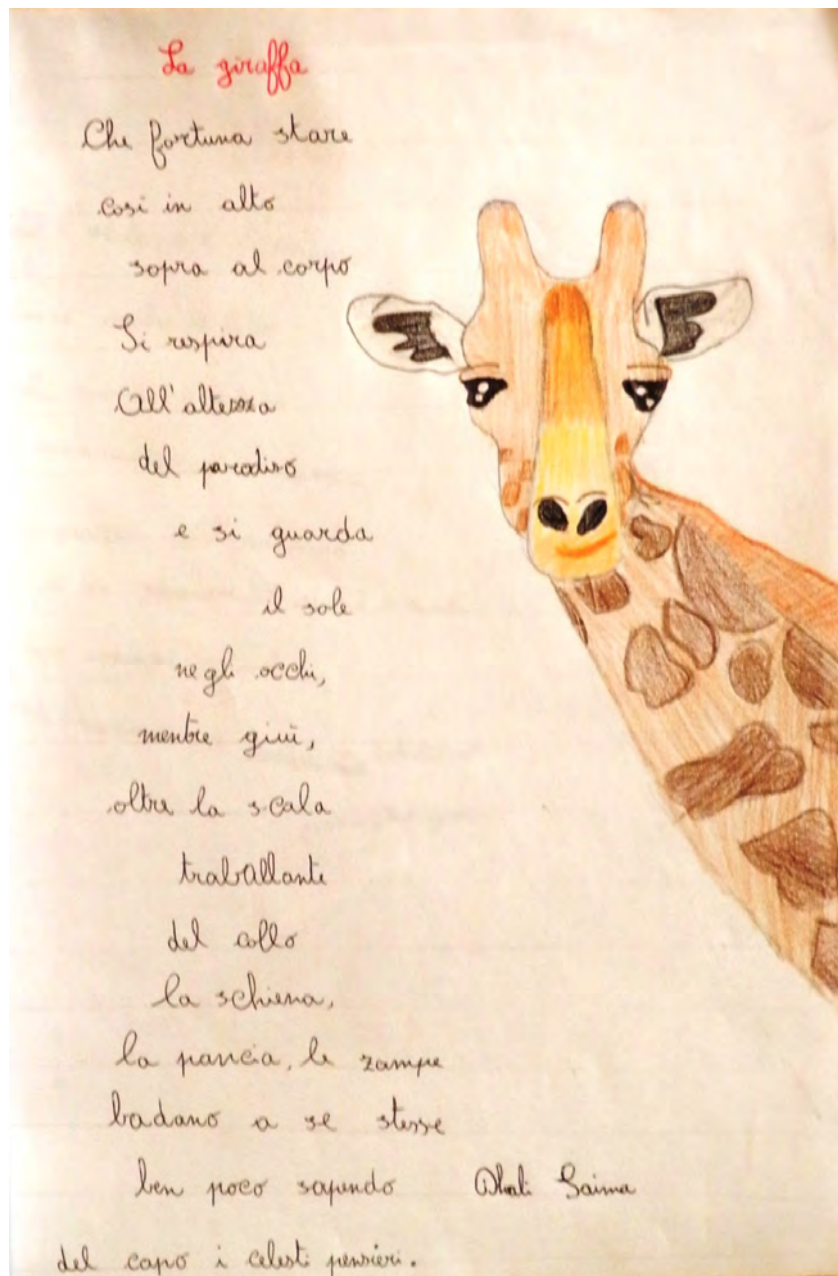 La giraffa
Che fortuna stare
così in alto
sopra al corpo
Si respira
All'altezza
del paradiso
e si guarda
il sole
negli occhi,
mentre giù,
oltre la scala
traballante
del collo
la schiena,
la pancia, le zampe
badano a se stesse
ben poco sapendo
Saima
del capo i celesti pensieri.